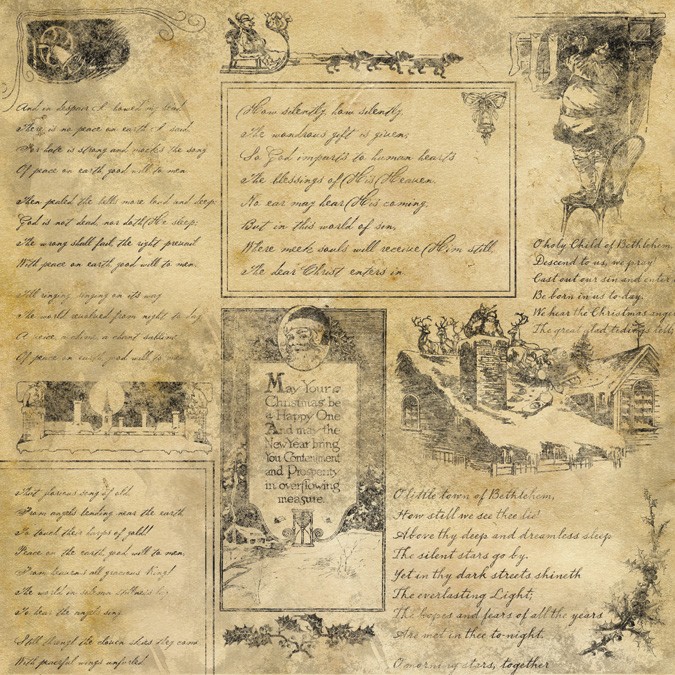 And in despair I bowed my head
There is no peace on earth I said
For hate is strong and mocks the song
Of peace on earth, good will to men.
Then pealed the bells more loud and deep:
God is not dead, nor doth He sleep;
The wrong shall fail, the right prevail
With peace on earth, good will to men.
Till ringing, singing on its way
The world revolved from night to day
A voice, a chime, a chant sublime
Of peace on earth, good will to men
That glorious song of old,
From angels bending near the earth
To touch their harps of gold!
Peace on the earth, good will to men,
From heavens all gracious King!
The world in solemn stillness lay
To hear the angels sing.
Still through the cloven skies they come
With peaceful wings unfurled
How silently, how silently,
The wondrous gift is given;
So God imparts to human hearts
The blessings of His Heaven.
No ear may hear His coming,
But in this world of sin,
Where meek souls will receive Him still,
The dear Christ enters in.
May Your
Christmas be
a Happy One
And may the
New Year bring
You Contentment
and Prosperity
in overflowing
measure.
O holy Child of Bethlehem,
Descend to us, we pray!
Cast out our sin and enter
Be born in us to-day.
We hear the Christmas ange
The great glad tidings tell
O little town of Bethlehem,
How still we see thee lie!
Above thy deep and dreamless sleep
The silent stars go by.
Yet in thy dark streets shineth
The everlasting Light;
The hopes and fears of all the years
Are met in thee to-night.
O morning stars, together